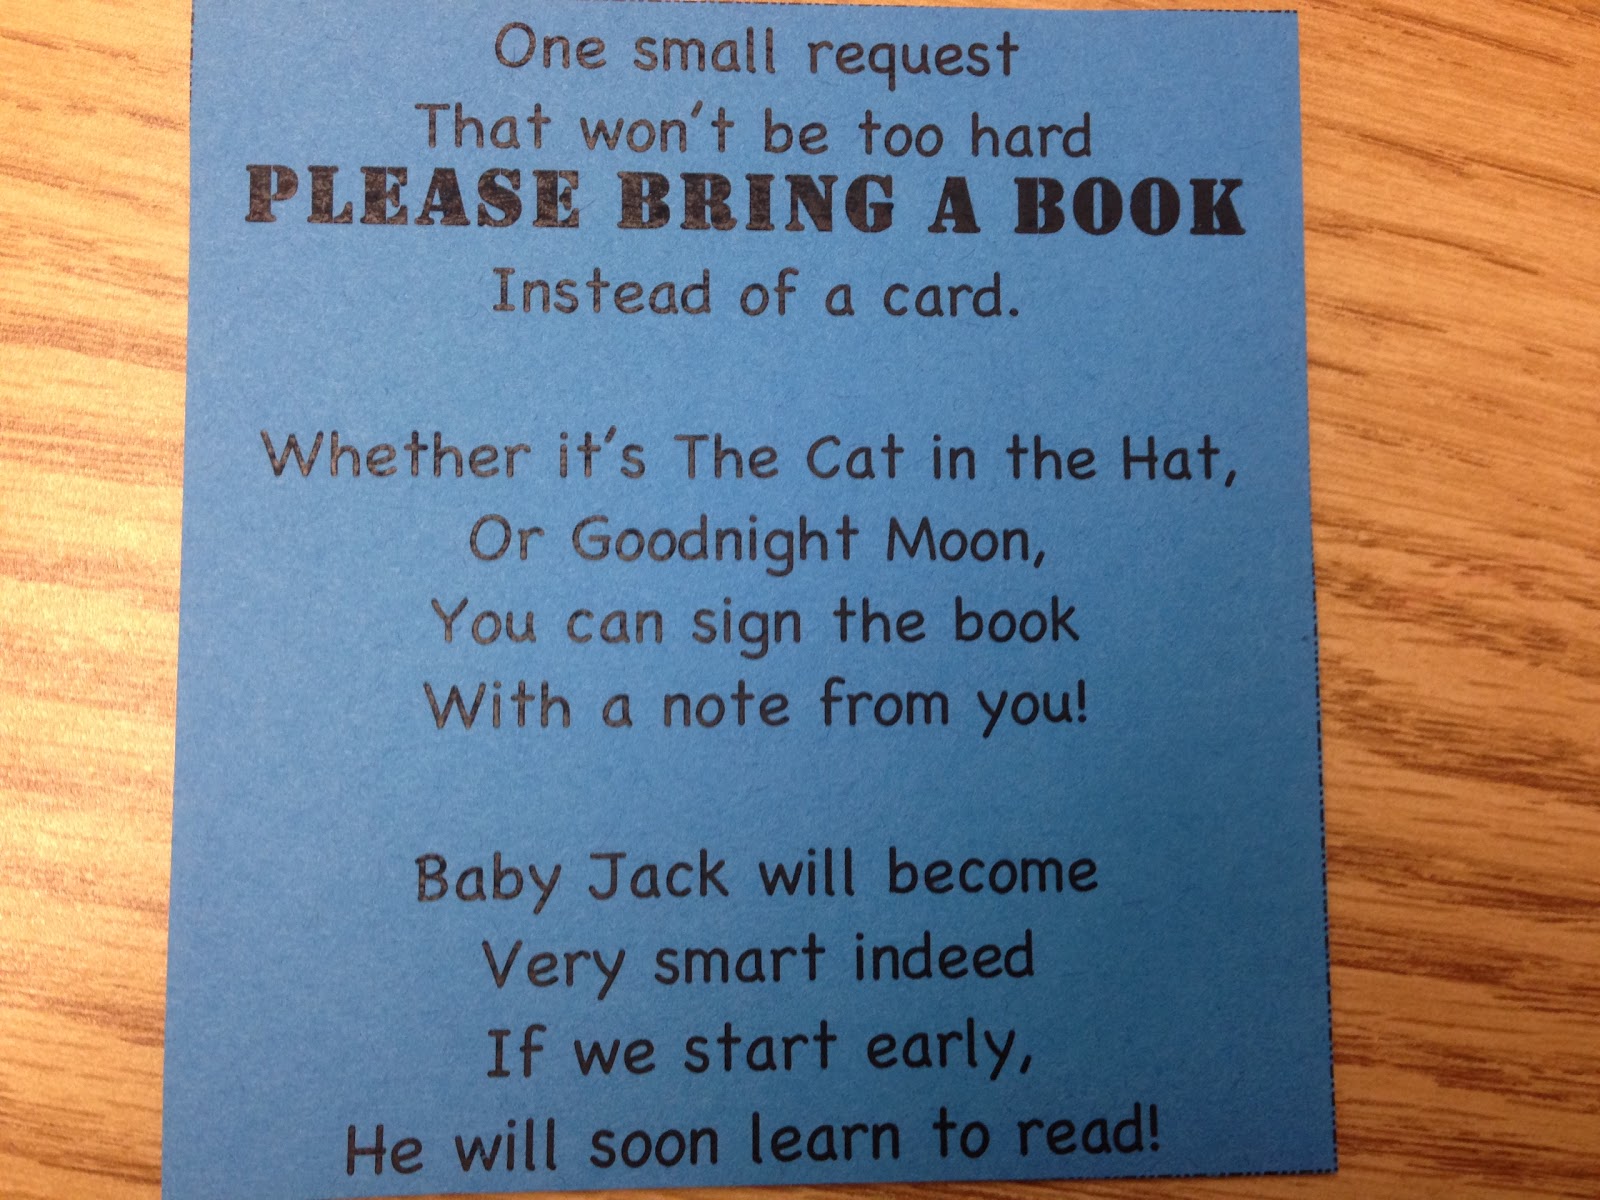 One small request
That won't be too hard
PLEASE BRING A BOOK
Instead of a card.
Whether it's The Cat in the Hat,
Or Goodnight Moon,
You can sign the book
With a note from you!
Baby Jack will become
Very smart indeed
If we start early,
He will soon learn to read!